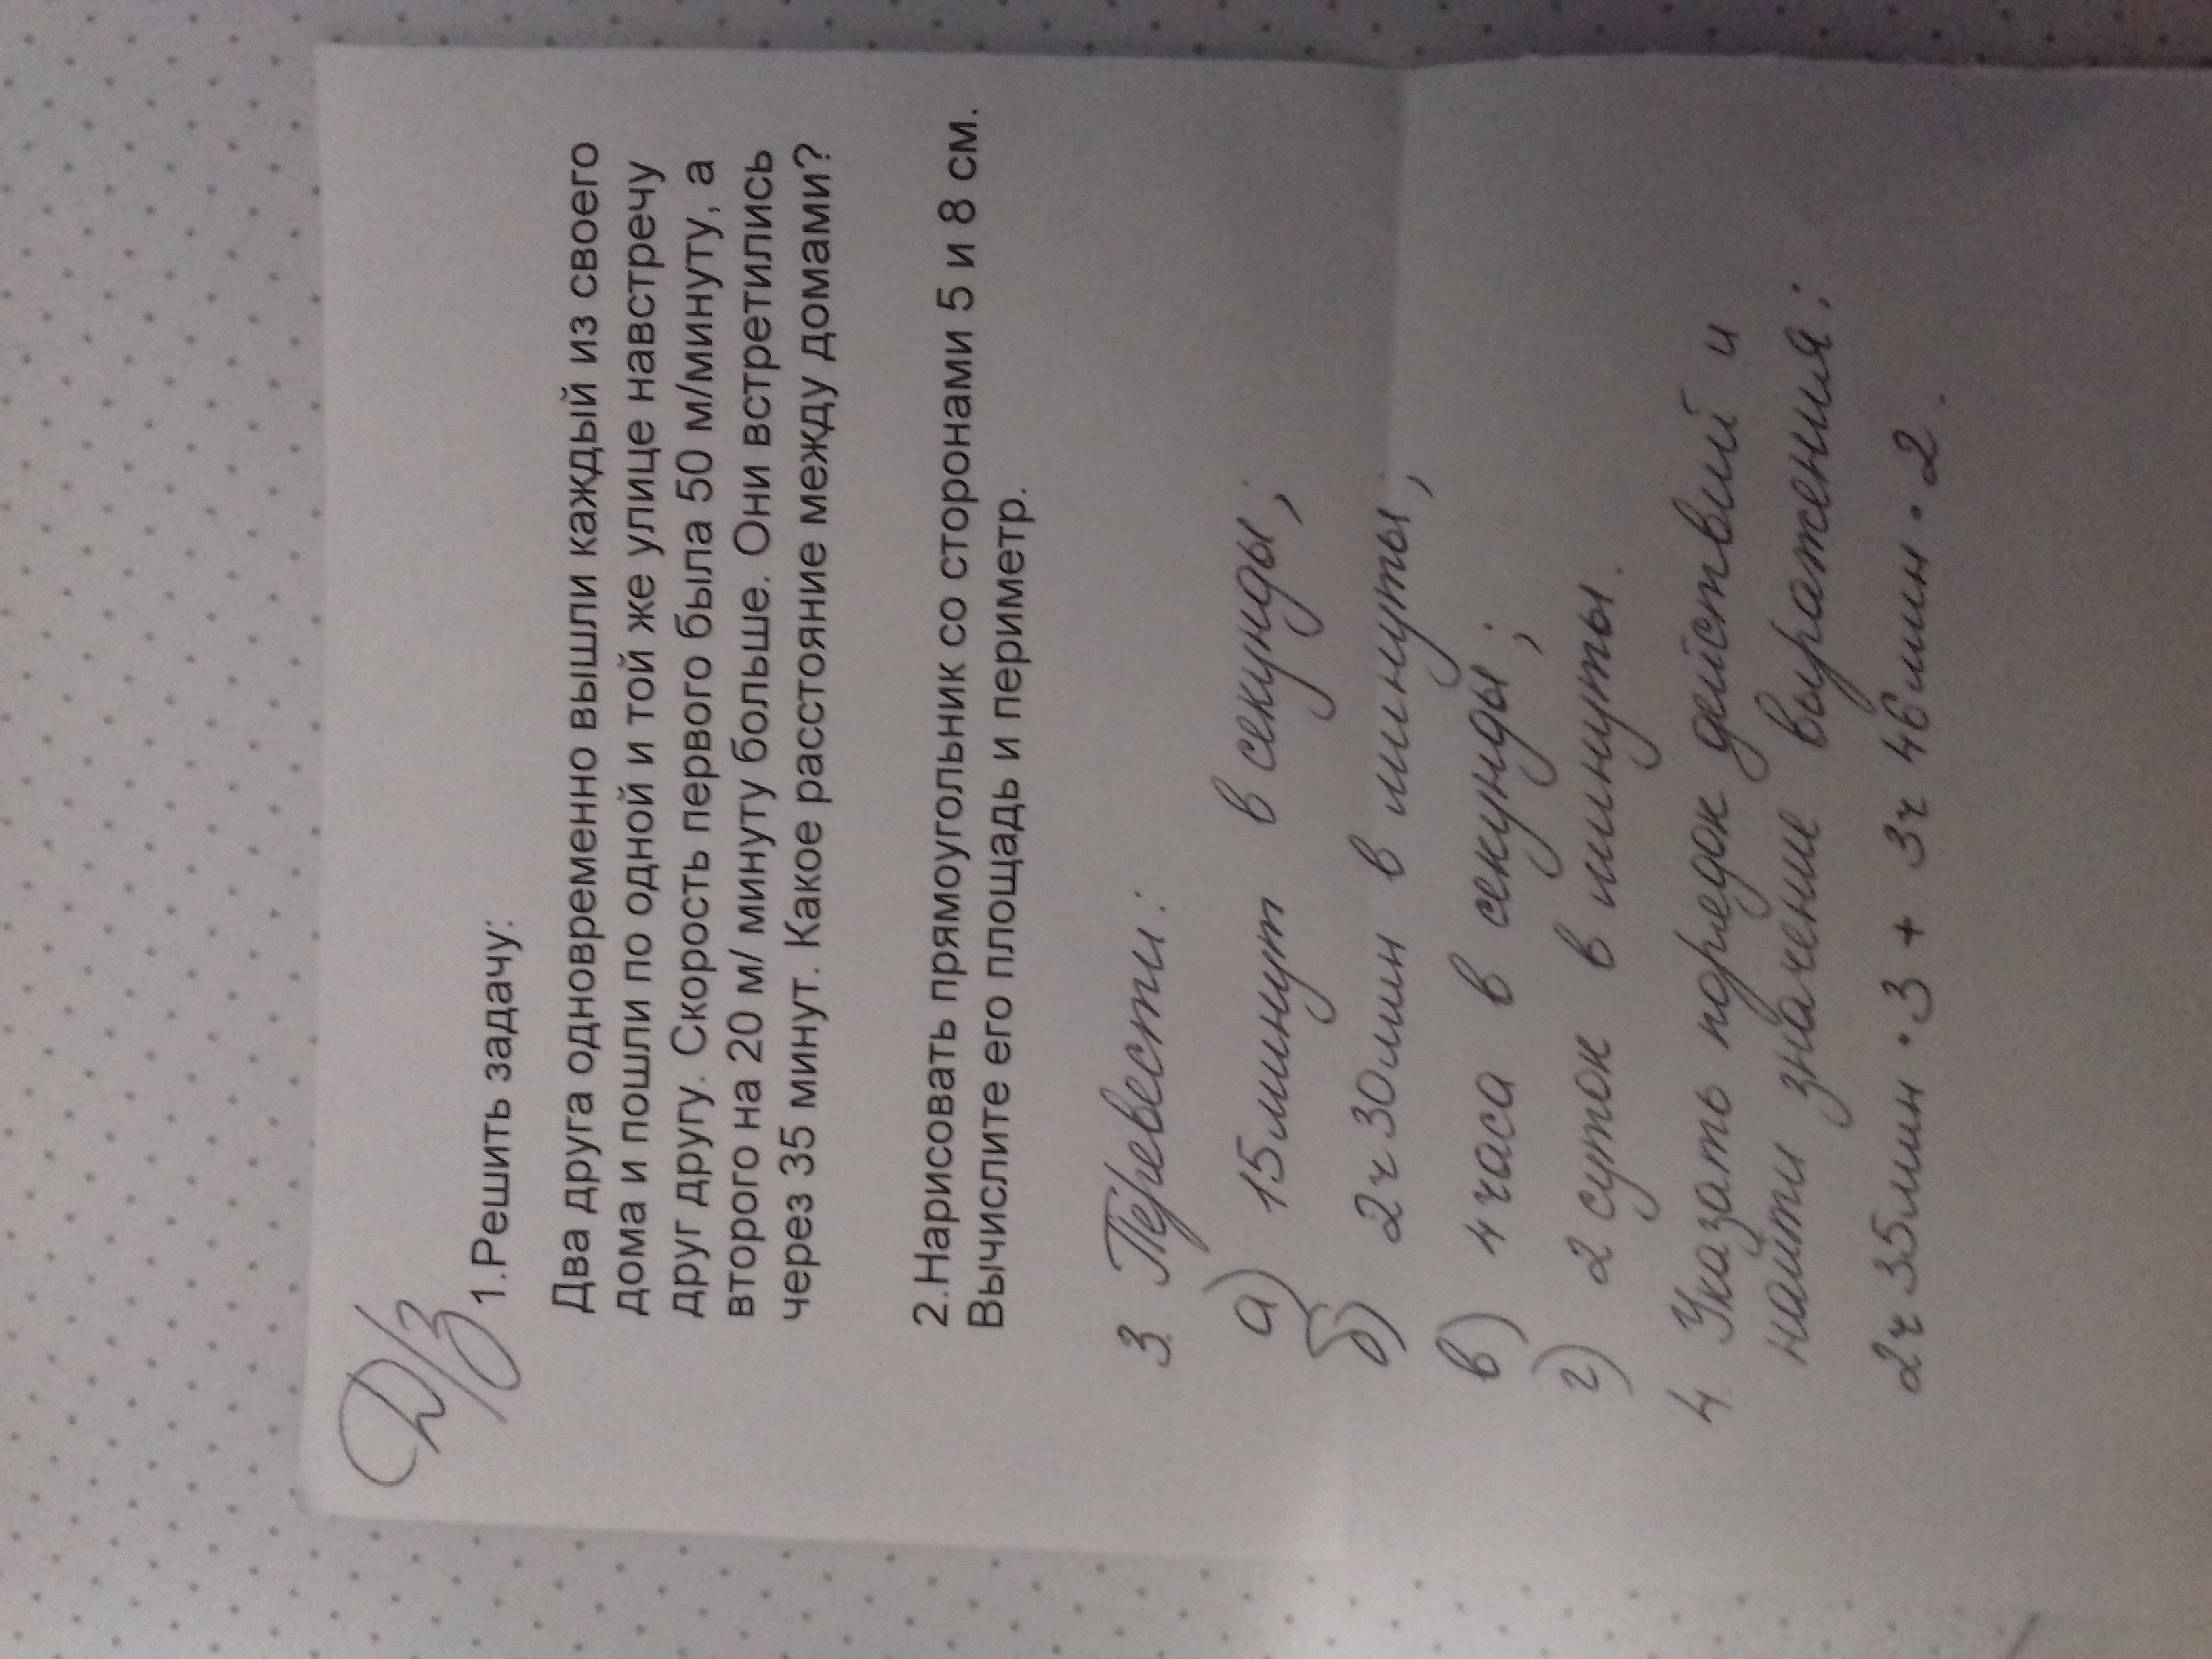 Д/З
1.Решить задачу:
Два друга одновременно вышли каждый из своего
дома и пошли по одной и той же улице навстречу
друг другу. Скорость первого была 50 м/минуту, а
второго на 20 м/ минуту больше. Они встретились
через 35 минут. Какое расстояние между домами?
2.Нарисовать прямоугольник со сторонами 5 и 8 см.
Вычислите его площадь и периметр.
3. Перевести:
а) 15минут в секунды;
б) 2ч 30мин в минуты;
в) 4часа в секунды;
г) 2 суток в минуты.
4. Указать порядок действий и
найти значение выражения:
2ч 35мин · 3 + 3ч 46мин · 2.